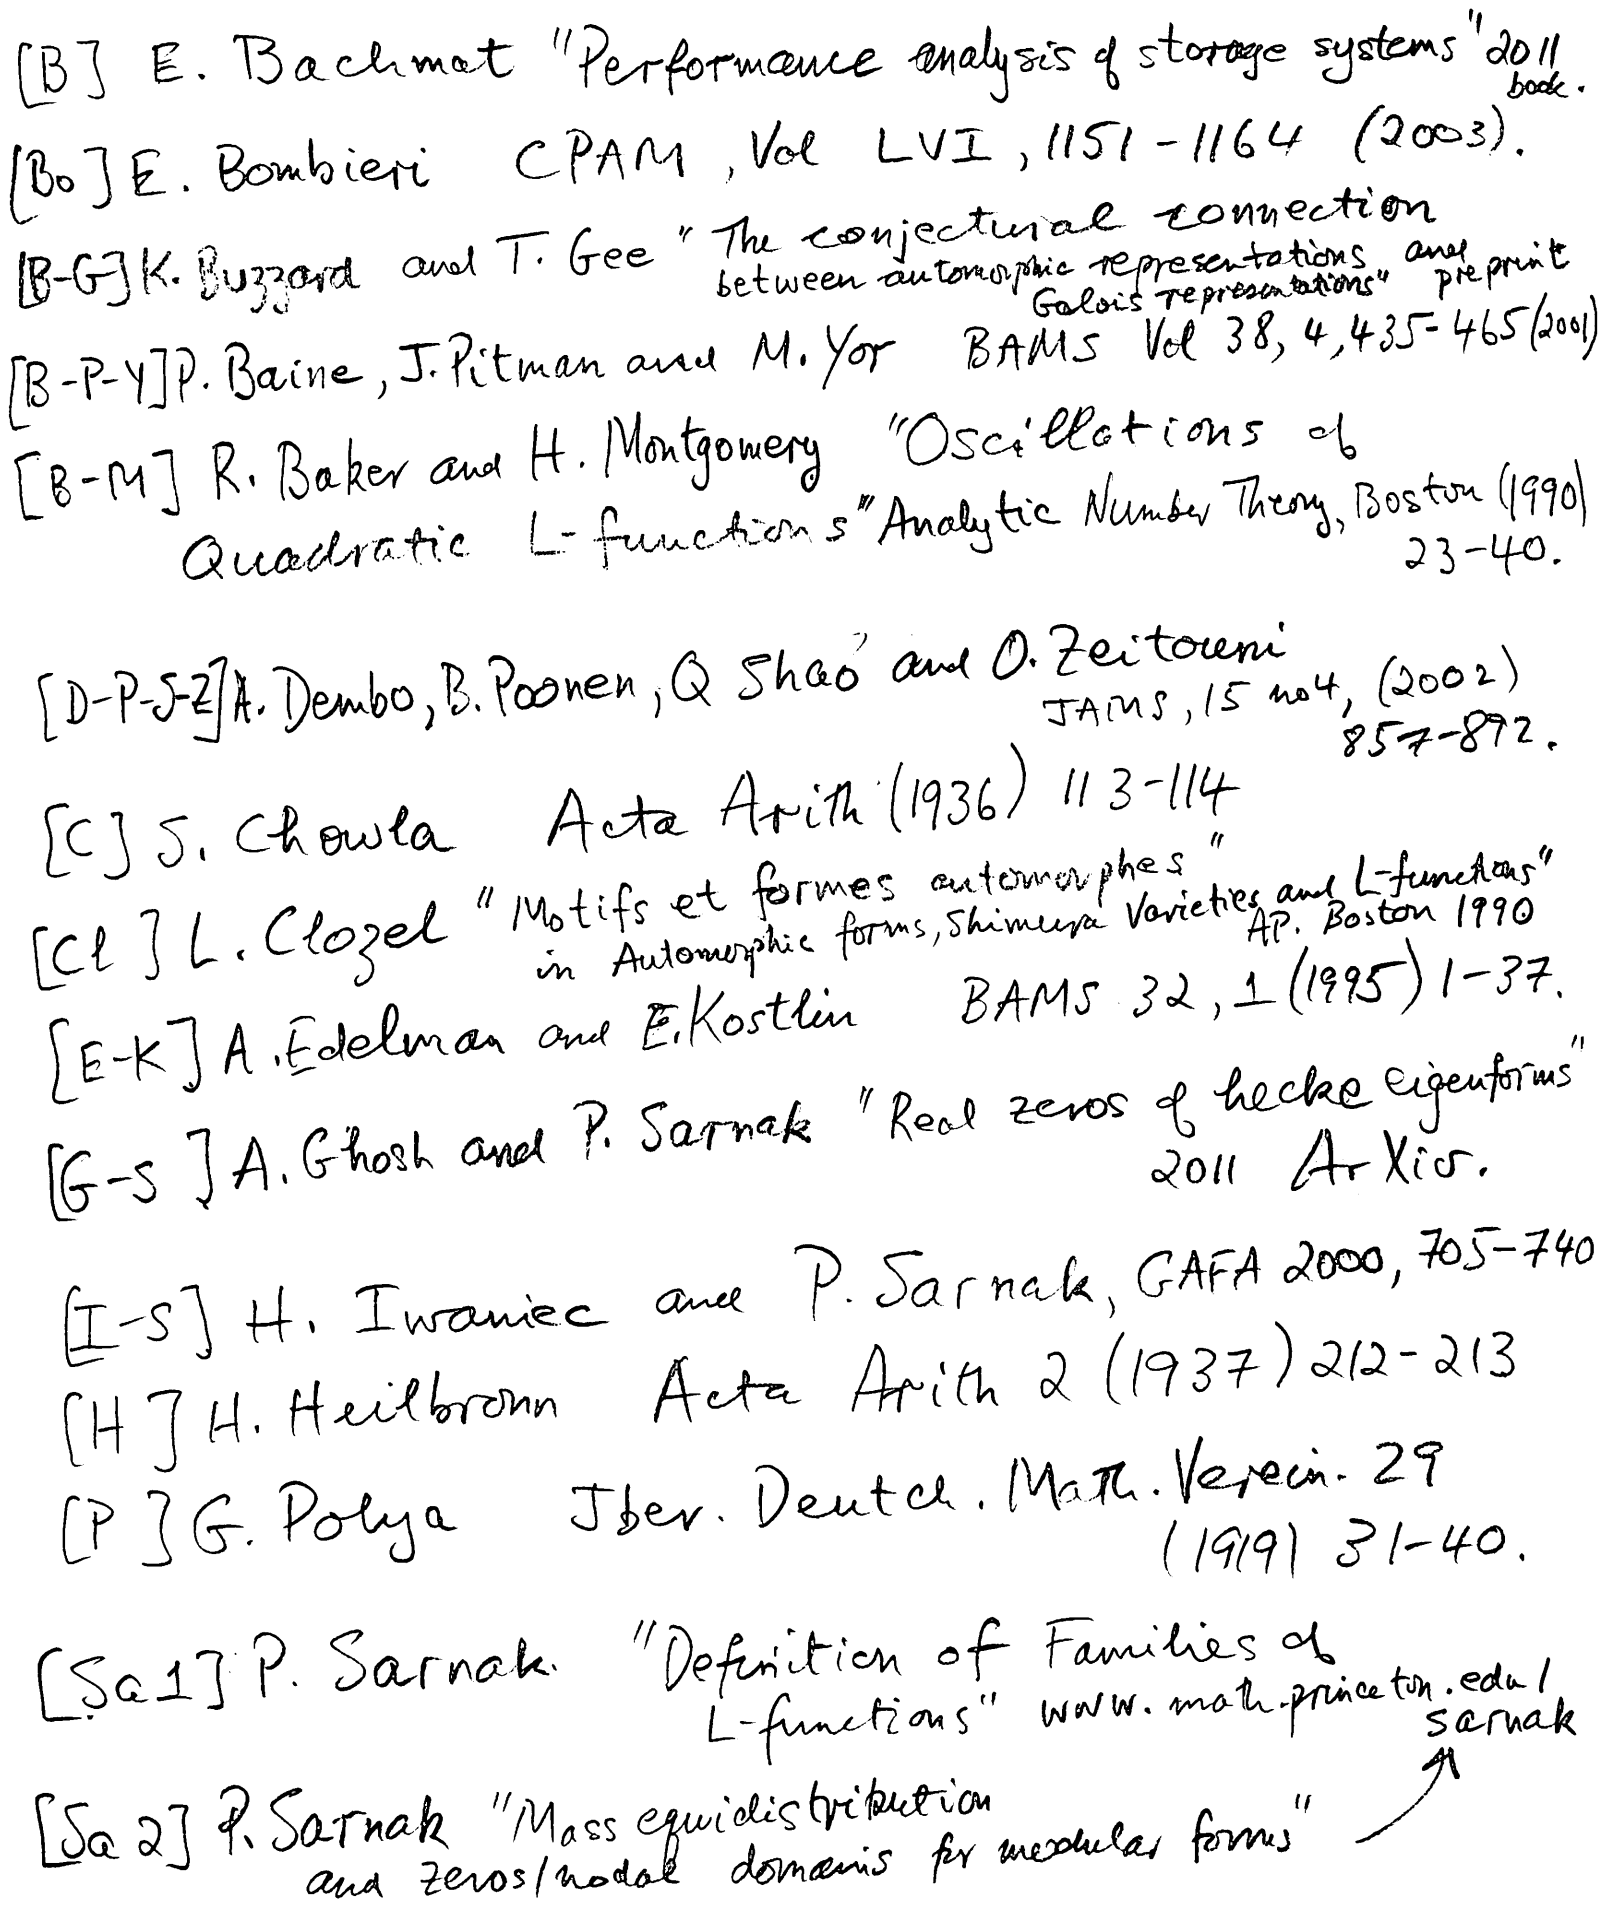 [B] E. Bachmat "Performance analysis of storage systems" 2011
book.
[Bo] E. Bombieri CPAM, Vol LVI, 1151-1164 (2003).
[B-G] K. Buzzard and T. Gee "The conjectural connection
between automorphic representations and
Galois representations" preprint
[B-P-Y] P. Baine, J. Pitman and M. Yor BAMS Vol 38, 4, 435-465 (2001)
[B-M] R. Baker and H. Montgomery "Oscillations of
Quadratic L-functions" Analytic Number Theory, Boston (1990)
23-40.
[D-P-S-Z] A. Dembo, B. Poonen, Q Shao and O. Zeitouni
JAMS, 15 no4, (2002)
857-892.
[C] S. Chowla Acta Arith (1936) 113-114
[Cl] L. Clozel "Motifs et formes automorphes"
in Automorphic forms, Shimura Varieties and L-functions"
AP. Boston 1990
[E-K] A. Edelman and E. Kostlin BAMS 32, 1 (1995) 1-37.
[G-S] A. Ghosh and P. Sarnak "Real zeros of hecke eigenforms"
2011 ArXiv.
[I-S] H. Iwaniec and P. Sarnak, GAFA 2000, 705-740
[H] H. Heilbronn Acta Arith 2 (1937) 212-213
[P] G. Polya Jber. Deutch. Math. Verein. 29
(1919) 31-40.
[Sa1] P. Sarnak. "Definition of Families of
L-functions" www.math.princeton.edu/
sarnak
[Sa2] P. Sarnak "Mass equidistribution
and zeros/nodal domains for modular forms"